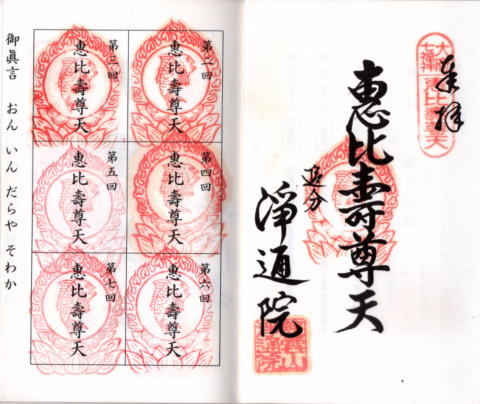 奉拝
七福神 恵比壽尊天
恵比壽尊天
追分
淨通院
第一回
恵比壽尊天
第三回
恵比壽尊天
第四回
恵比壽尊天
第五回
恵比壽尊天
第六回
恵比壽尊天
第七回
恵比壽尊天
御眞言 おん いん だらや そわか